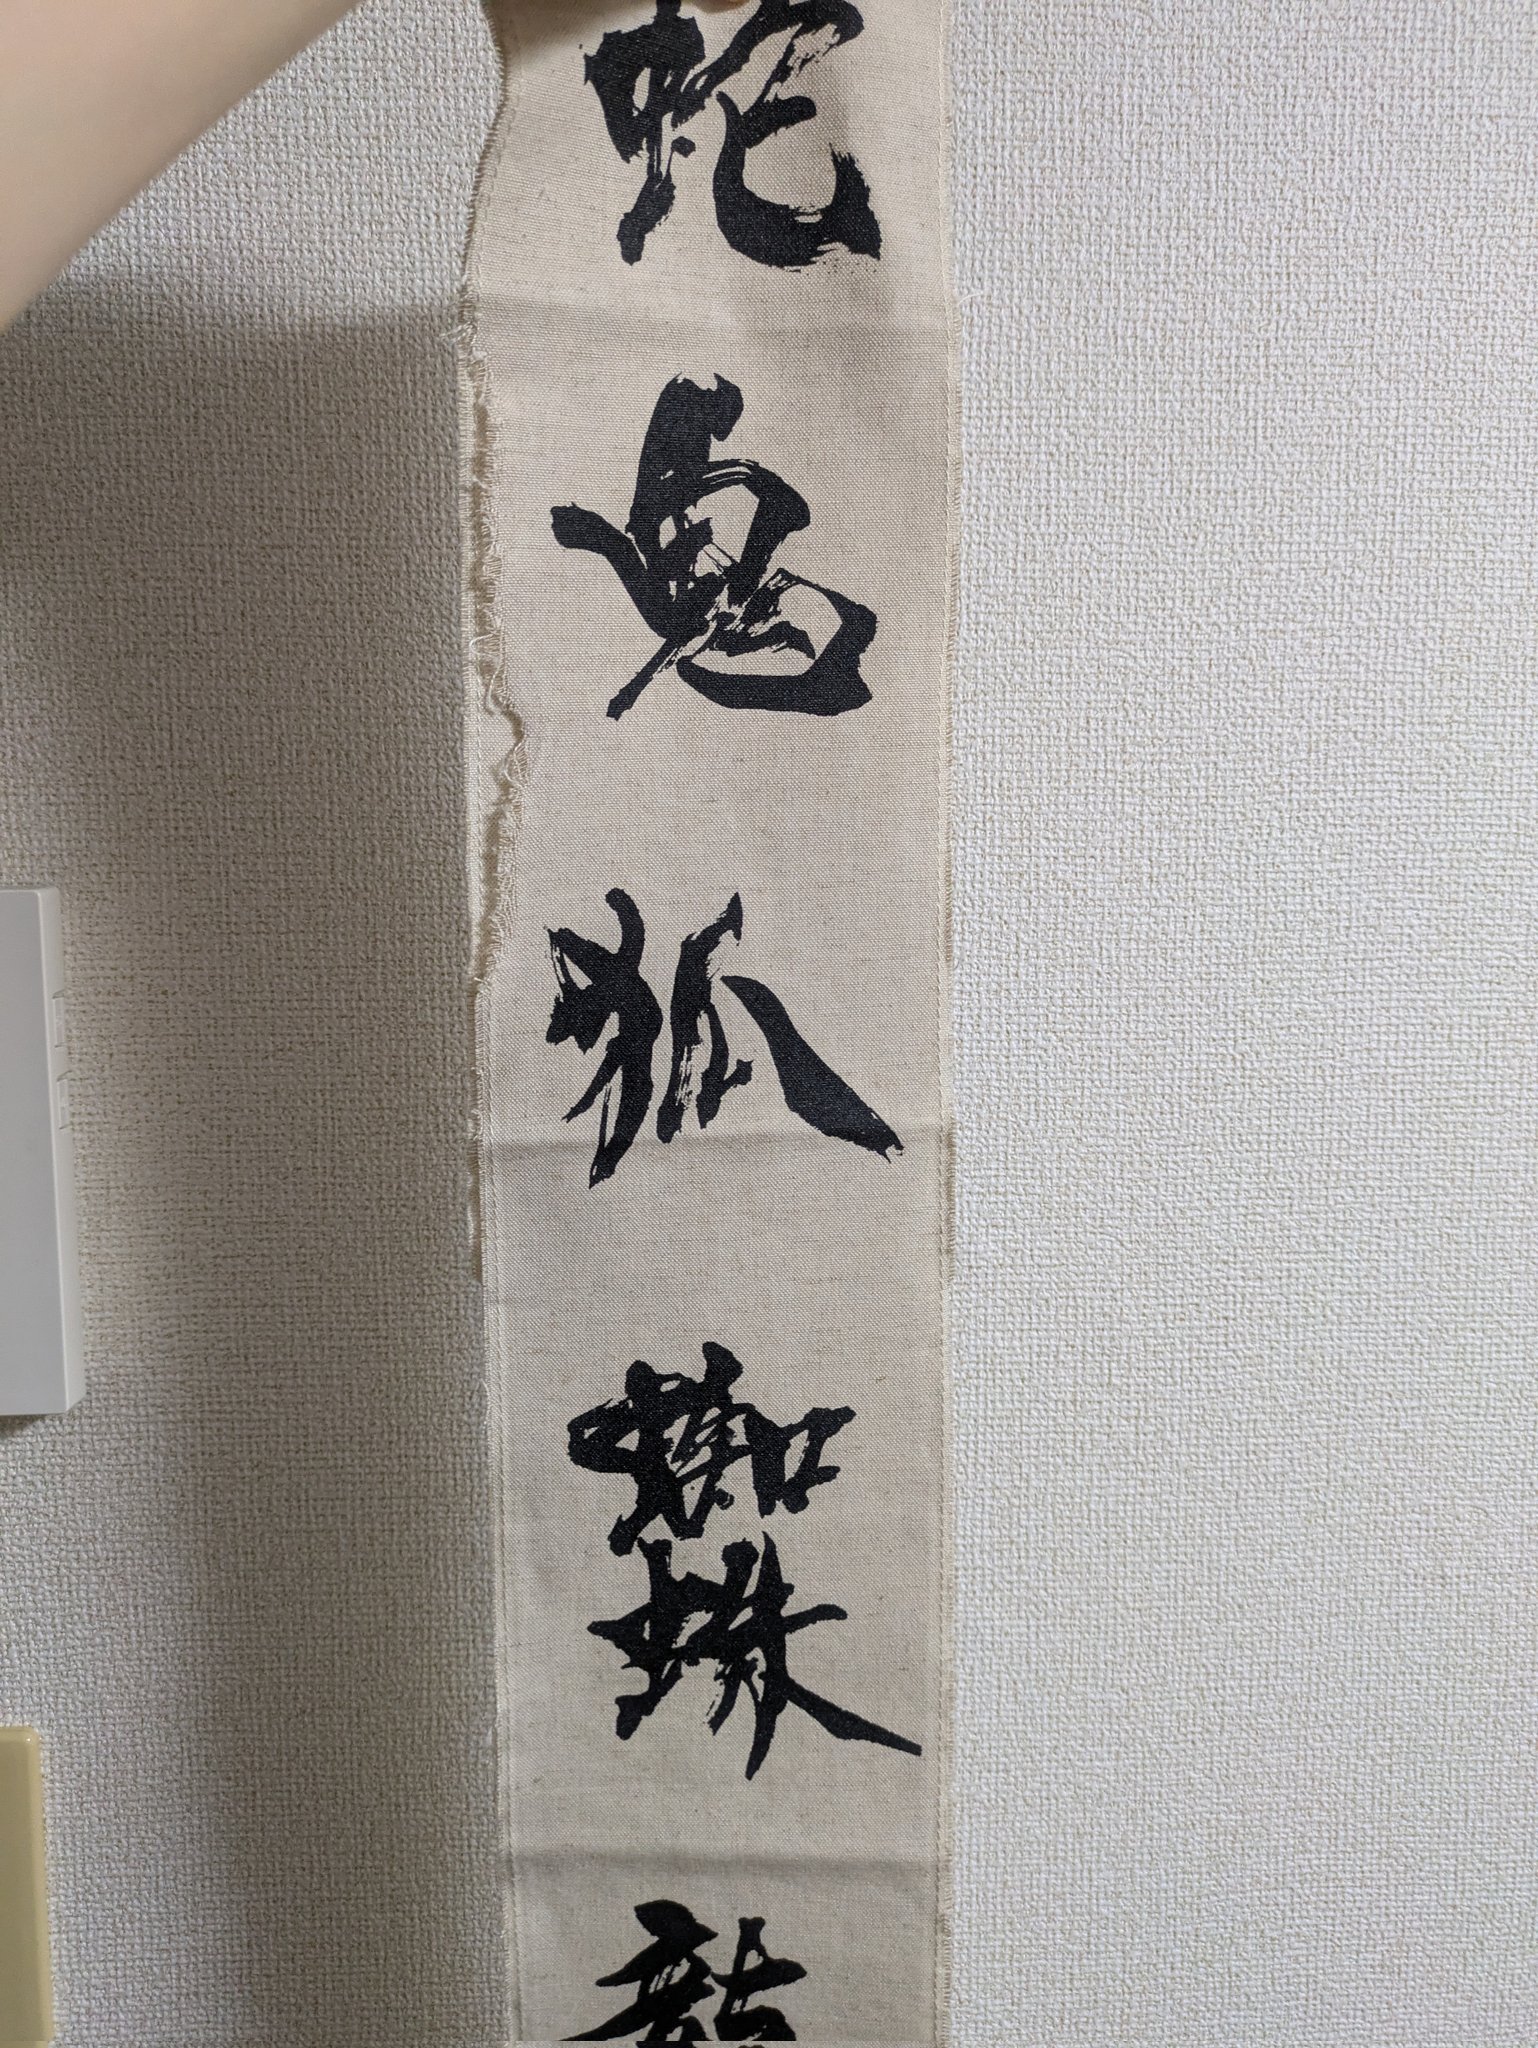 蛇
鬼
狐
蜘蛛
龍